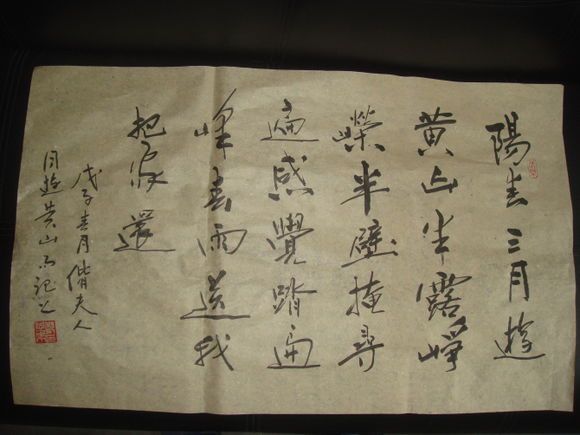 陽春三月遊
黄山半露崢
嶸半壁掩尋
遍感覺踏遍
峰春雨送我
把家還
戊子春月偕夫人
同遊黄山而记之